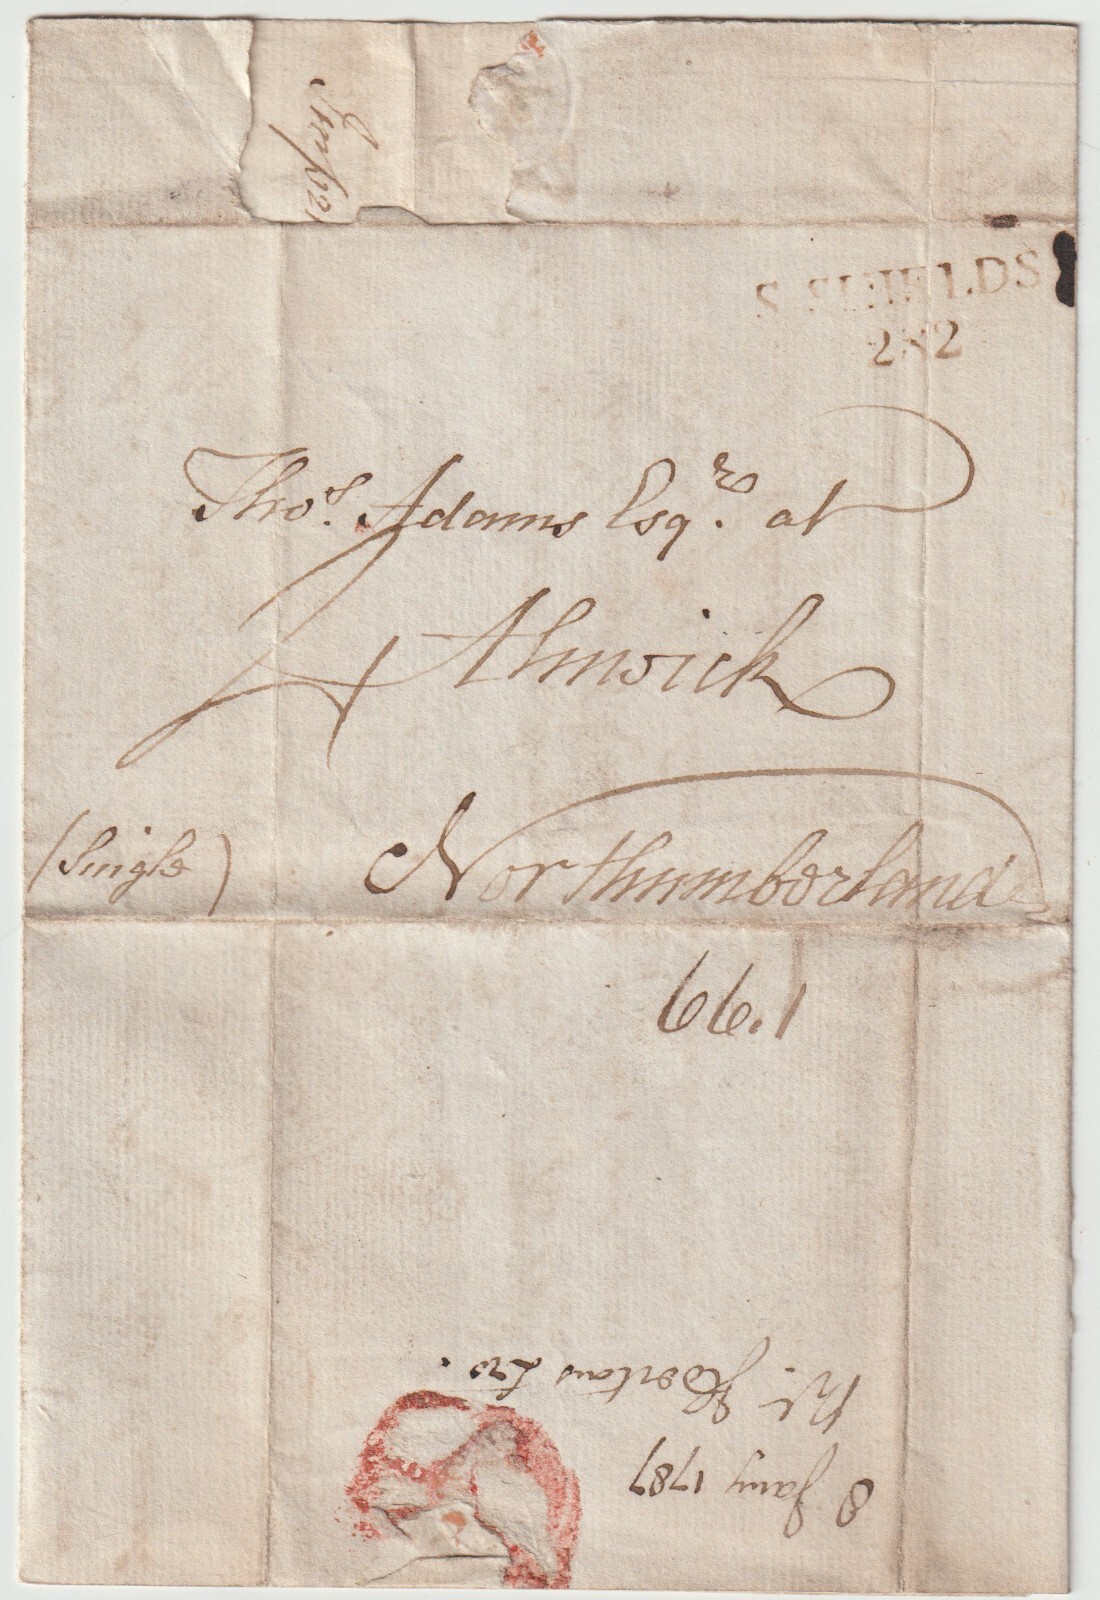 S SHIELDS
282
Thos. Adams Esqr. at
Alnwick
(Single)
Northumberland
66.1
8 Jany 1787